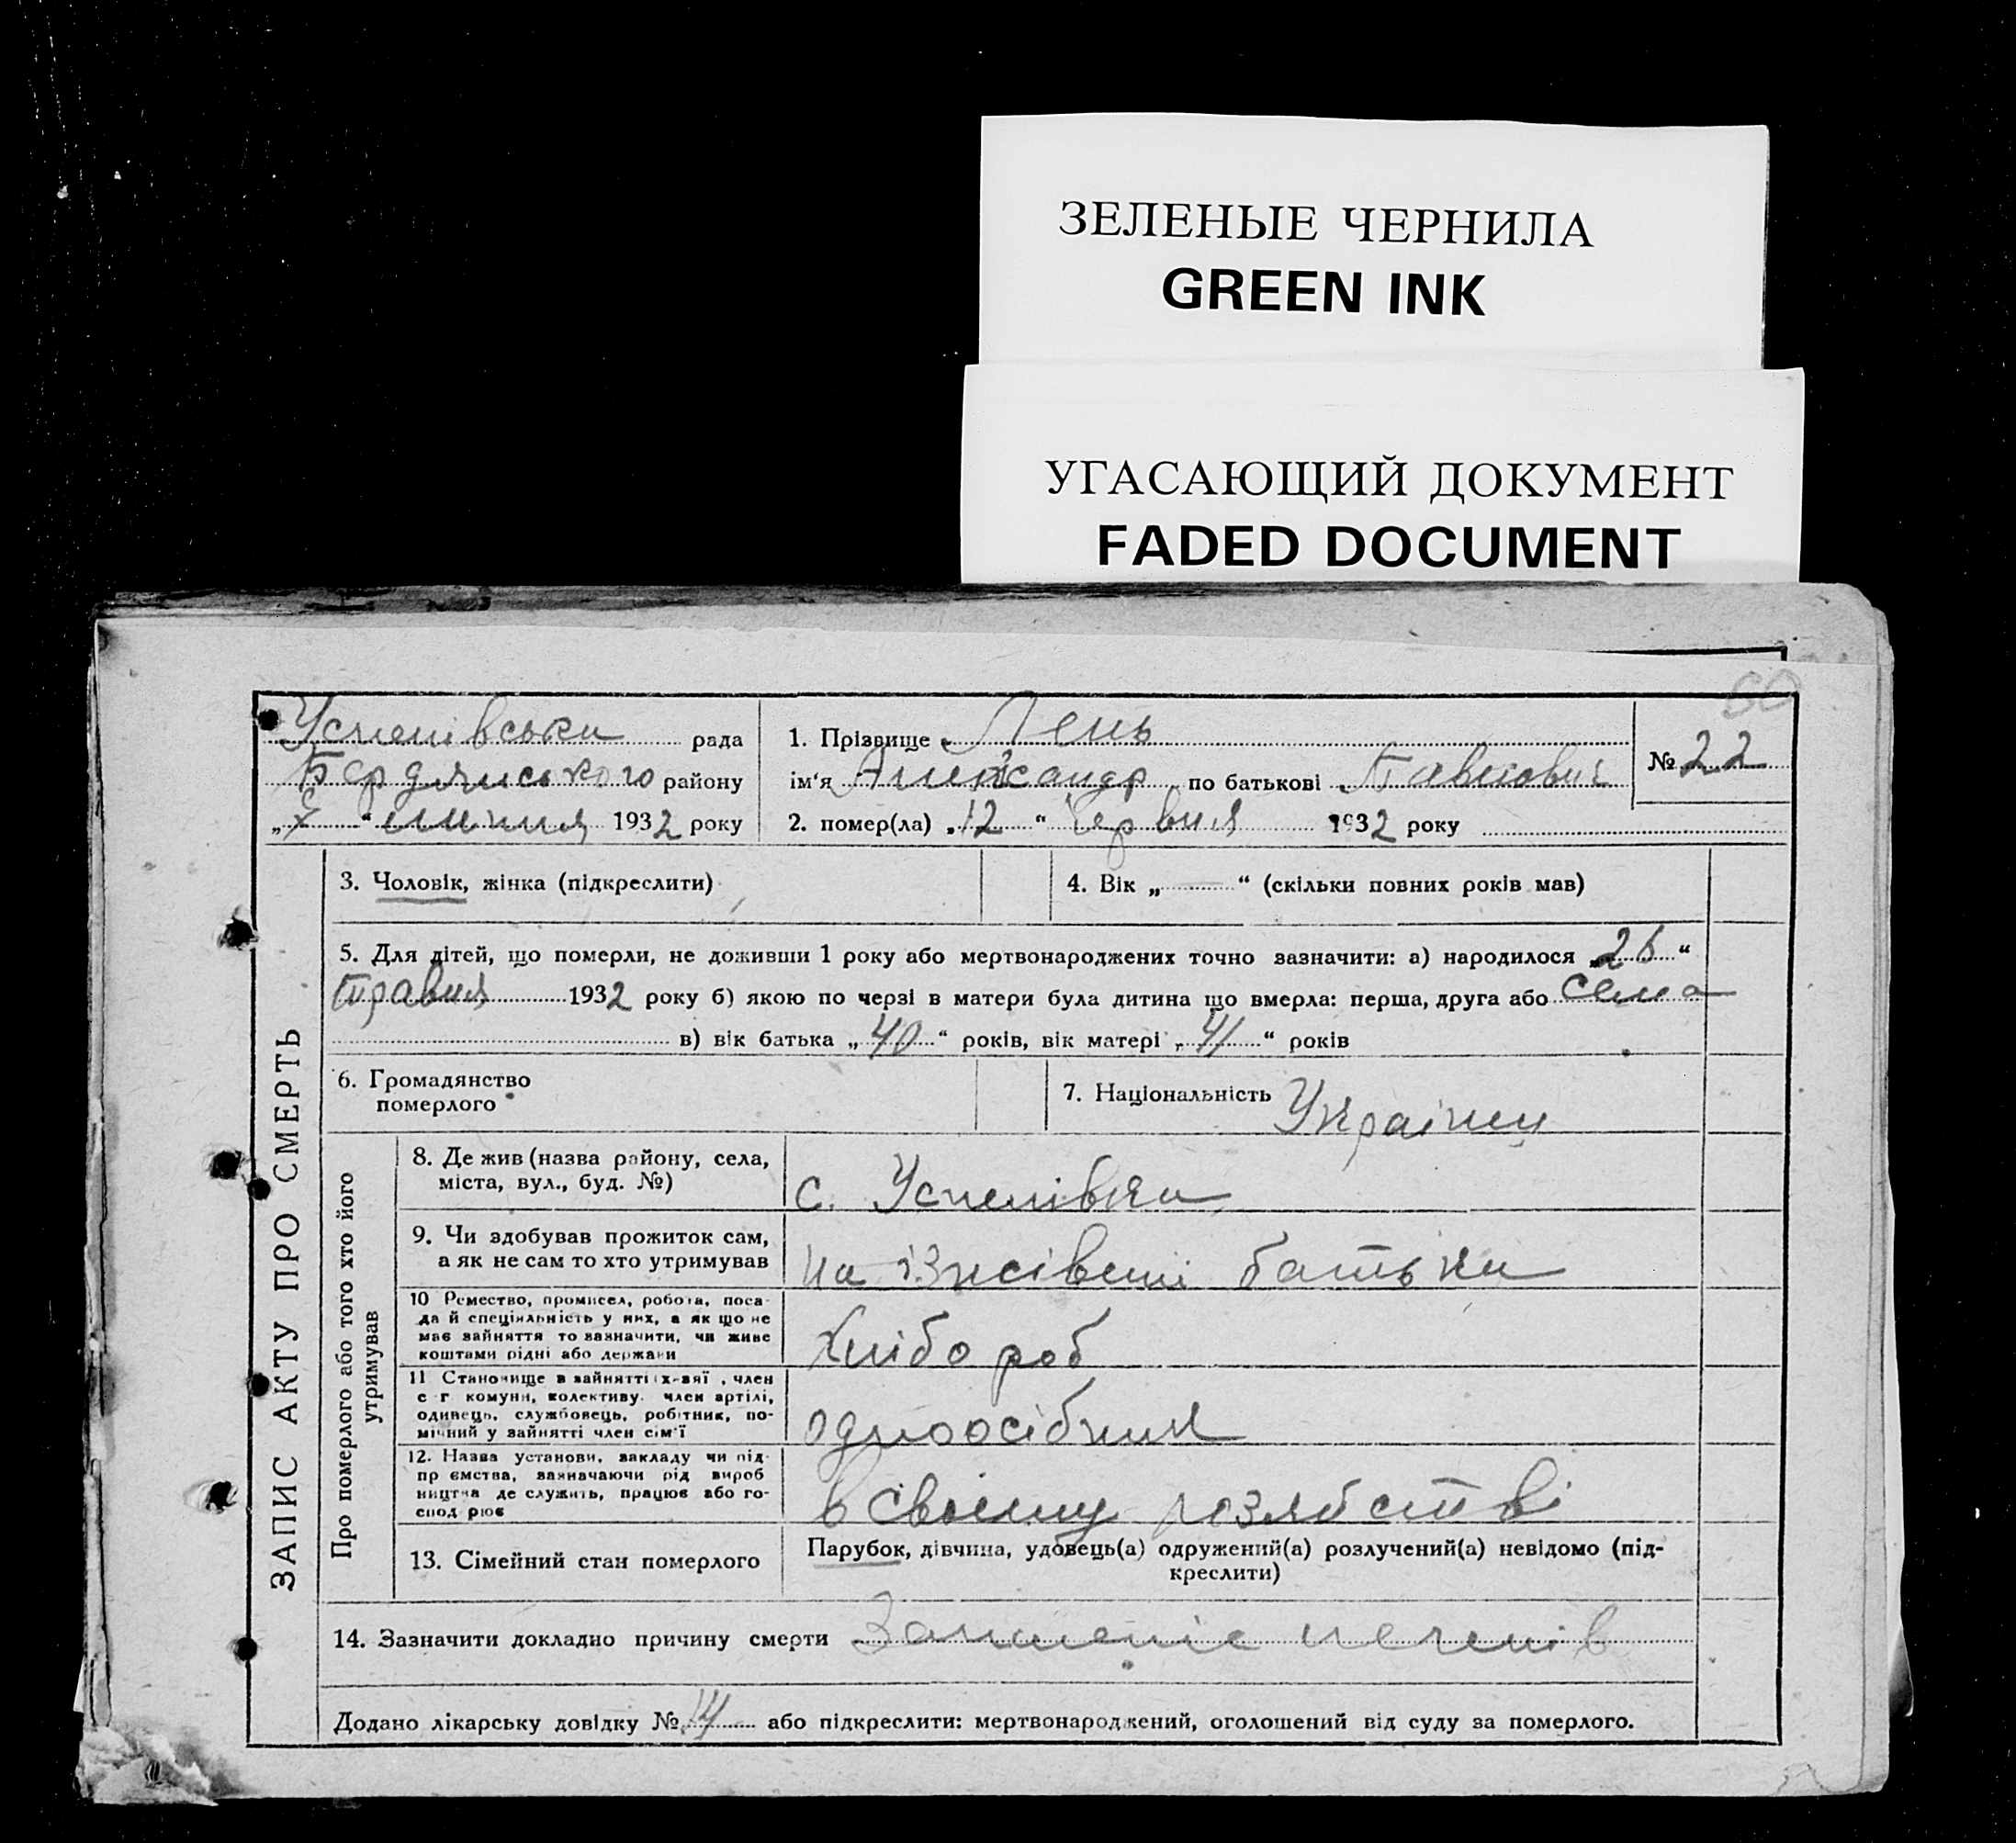 ЗЕЛЕНЫЕ ЧЕРНИЛА
GREEN INK
УГАСАЮЩИЙ ДОКУМЕНТ
FADED DOCUMENT
60
Успенівська рада
Бердянського району
„ “ липня 1932 року
1. Прізвище Лень
ім‘я Александр по батькові Павлович
2. помер(ла) „12“ Червня 1932 року
№ 22
ЗАПИС АКТУ ПРО СМЕРТЬ
3. Чоловік, жінка (підкреслити)
4. Вік „ “ (скільки повних років мав)
5. Для дітей, що померли, не доживши 1 року або мертвонароджених точно зазначити: а) народилося „26“
Травня 1932 року б) якою по черзі в матери була дитина що вмерла: перша, друга або сема
в) вік батька „40“ років, вік матері „41“ років
6. Громадянство
померлого
7. Національність Українец
Про померлого або того хто його
утримував
8. Де жив (назва району, села,
міста, вул., буд. №)
с. Успенівка
9. Чи здобував прожиток сам,
а як не сам то хто утримував
на іжєівені батька
10 Ремество, промисел, робота, поса-
да й спеціяльність у них, а як що не
має зайняття то зазначити, чи живе
коштами рідні або держави
Хлібороб
11 Становище в зайнятті (х-вяї, член
с г комуни, колективу, член артілі,
одинець, службовець, робітник, по-
мічний у зайнятті член сім‘ї
одноосібник
12. Назва установи, закладу чи під-
пр ємства, зазначаючи рід вироб
ництва де служить, працює або го-
спод рює
в своєму хозяйстві
13. Сімейний стан померлого
Парубок, дівчина, удовець(а) одружений(а) розлучений(а) невідомо (під-
креслити)
14. Зазначити докладно причину смерти Запаленіє
Додано лікарську довідку № 14 або підкреслити: мертвонароджений, оголошений від суду за померлого.